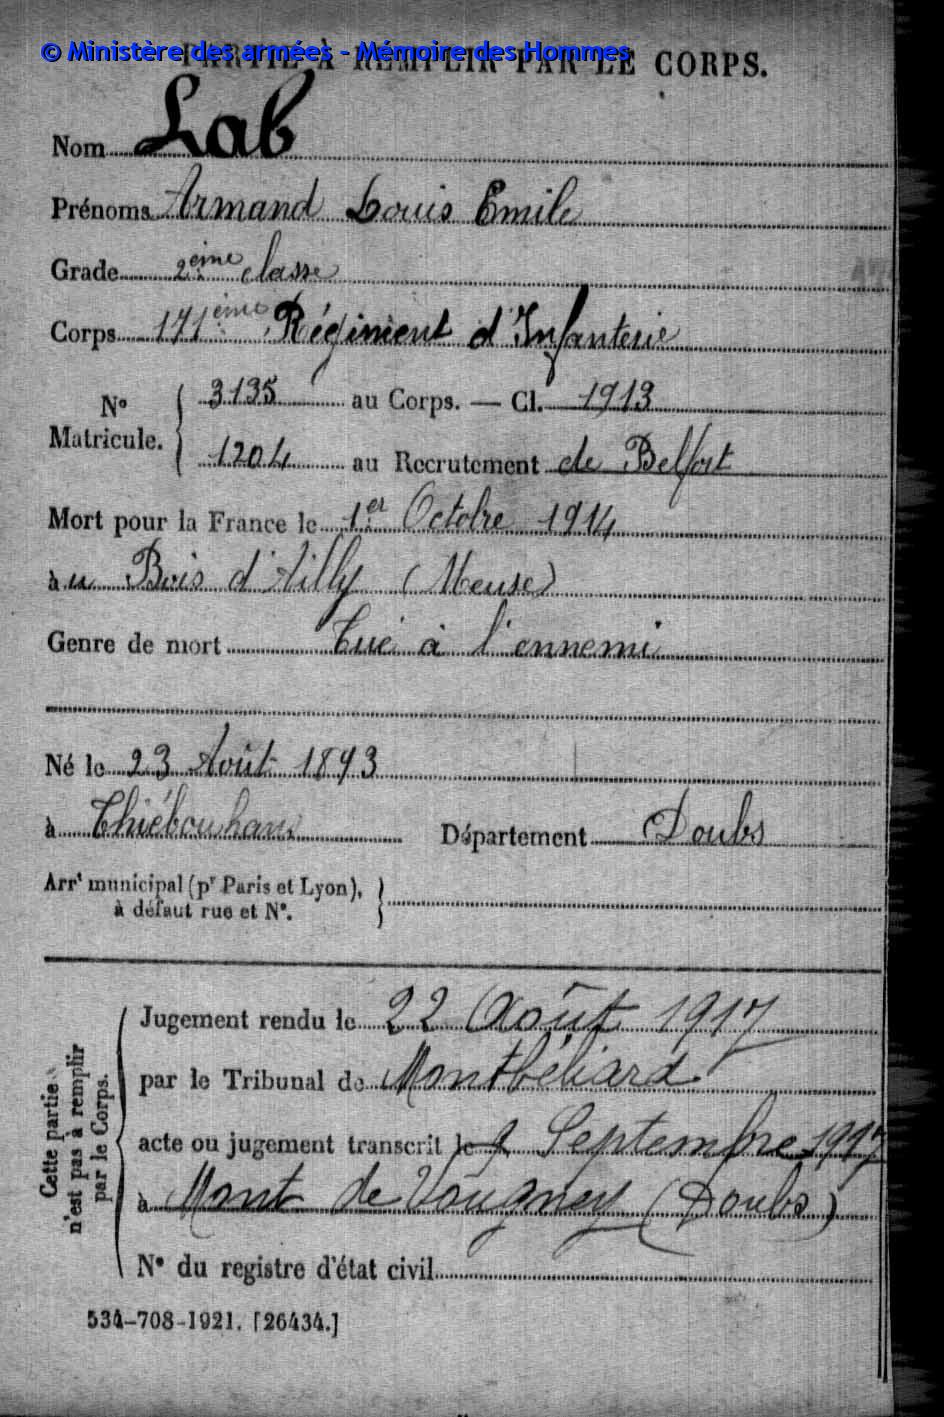 © Ministère des armées - Mémoire des Hommes
PARTIE À REMPLIR PAR LE CORPS.
Nom Lab
Prénoms Armand Louis Emile
Grade 2ème classe
Corps 171ème Régiment d'Infanterie
No Matricule. { 3135 au Corps. — Cl. 1913
1204 au Recrutement de Belfort
Mort pour la France le 1er Octobre 1914
au Bois d'Ailly (Meuse)
Genre de mort Tué à l'ennemi
Né le 23 Août 1893
à Thiébouhans Département Doubs
Arrt municipal (pr Paris et Lyon), à défaut rue et N°. }
Cette partie n'est pas à remplir par le Corps.
Jugement rendu le 22 Août 1917
par le Tribunal de Montbéliard
acte ou jugement transcrit le Septembre 1917
à Mont de Vougney (Doubs)
N° du registre d'état civil
534-708-1921. [26434.]